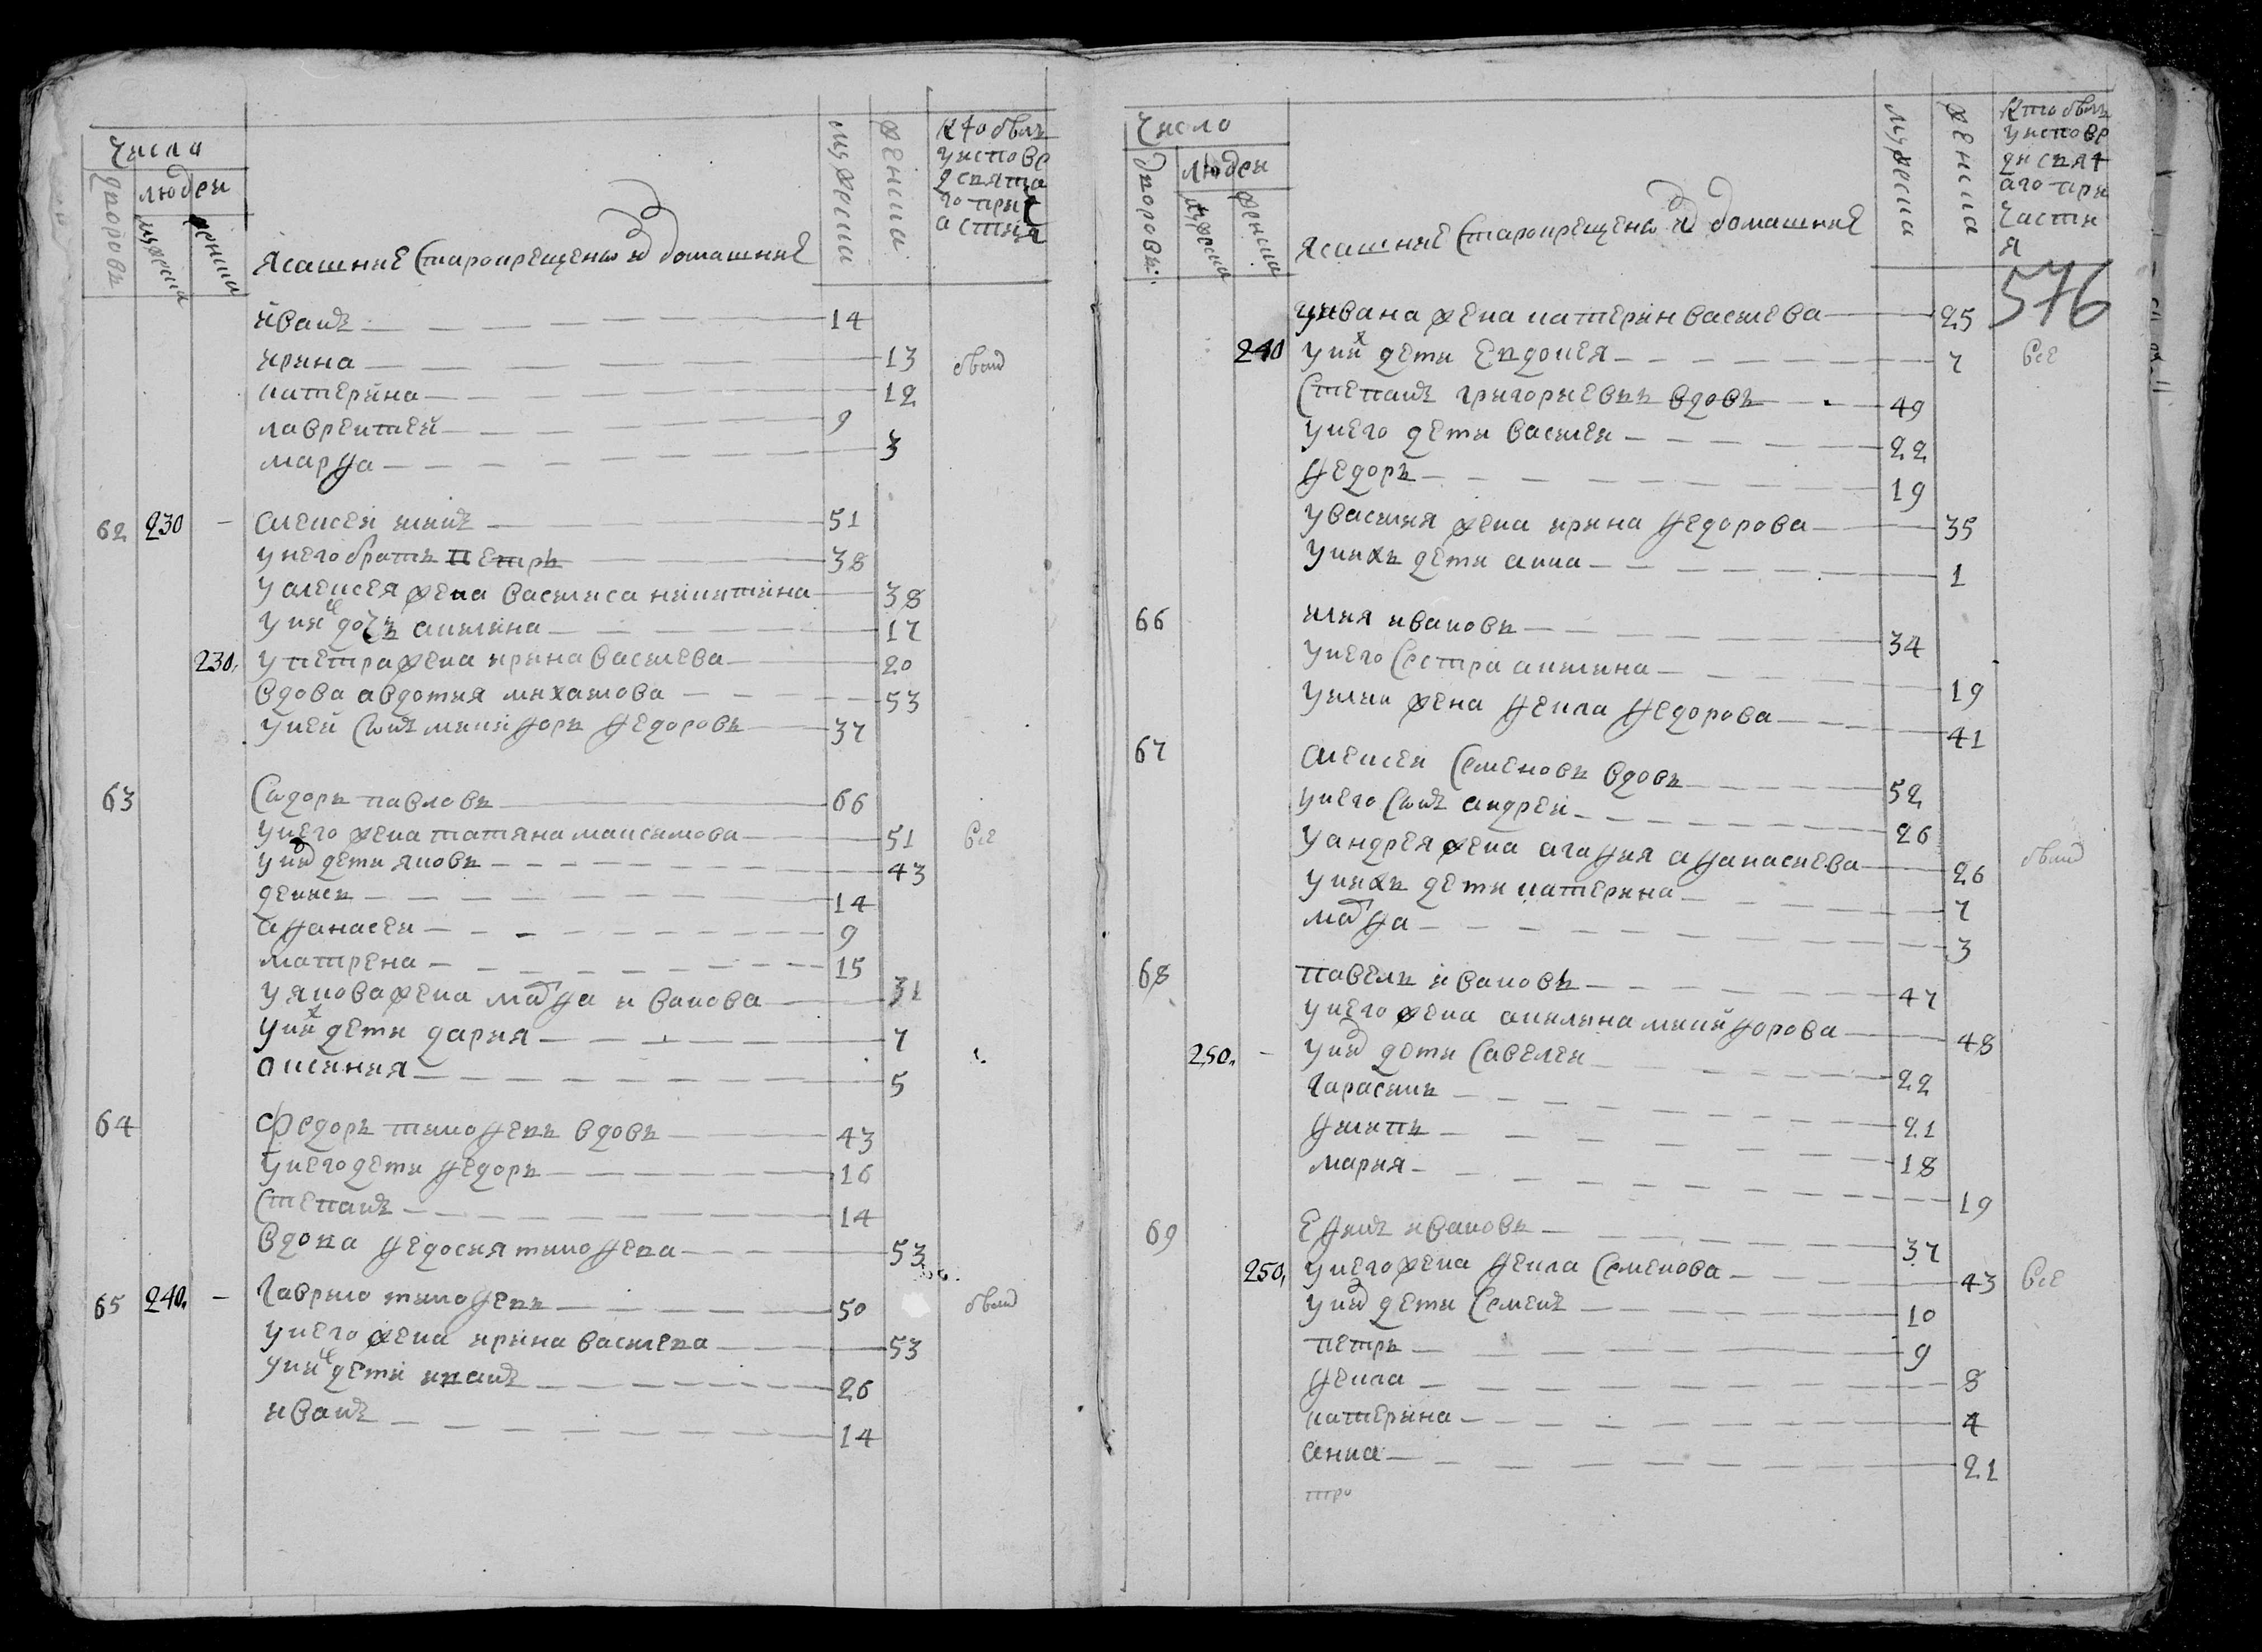 числа
дворовъ
людеи
мужеска
женска
ясашние старокрещены и домашние
мужеска
женска
кто былъ
у испове
ди свята
го прич
астия
иванъ 14
ирина 13 были
катерина 12
лаврентей 9
марфа 3
62 230 алексеи 51
у него братъ петръ 38
у алексея жена василиса никитина 38
у них дочь акилина 17
230 у петра жена ирина василева 20
вдова авдотия михаилова 53
у неи сынъ никифоръ федоровъ 37
63 сидоръ павловъ 66
у него жена татяна максимова 51 все
у них дети яковъ 43
денисъ 14
афанасеи 9
матрена 15
у якова жена марфа иванова 31
у них дети дария 7
оксиния 5
64 федоръ тимофевъ вдовъ 43
у него дети федоръ 16
степанъ 14
вдова федосия тимофева 53
65 240 гаврило тимофевъ 50 были
у него жена ирина василева 53
у них дети иванъ 26
иванъ 14
число
дворовъ
людеи
мужеска
женска
ясашние старокрещены и домашние
мужеска
женска
кто былъ
у испове
ди свят
аго при
части
я
576
у ивана жена катерин василева 25
240 у них дети евдокея 7 все
степанъ григориевъ вдовъ 49
у него дети василеи 22
федоръ 19
у василия жена ирина федорова 35
у нихъ дети анна 1
66 илия ивановъ 34
у него сестра акилина 19
у илии жена фекла федорова 41
67 алексеи семеновъ вдовъ 52
у него сынъ андреи 26
у андрея жена агафия афанасиева 26 были
у нихъ дети катерина 7
марфа 3
68 павелъ ивановъ 47
у него жена акилина никифорова 48
250 у них дети савелеи 22
гарасимъ 21
филипъ 18
мария 19
69 ефимъ ивановъ 37
250 у него жена фекла семенова 43 все
у них дети семенъ 10
петръ 9
фекла 8
катерина 4
анна 21